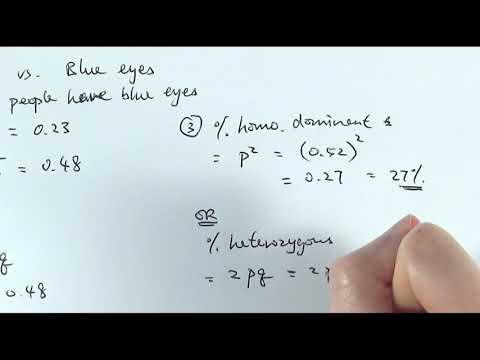 vs. Blue eyes
people have blue eyes
= 0.23
= 0.48
q
0.48
③ % homo. dominant
= p² = (0.52)²
= 0.27 = 27%.
OR
% heterozygous
= 2pq = 2